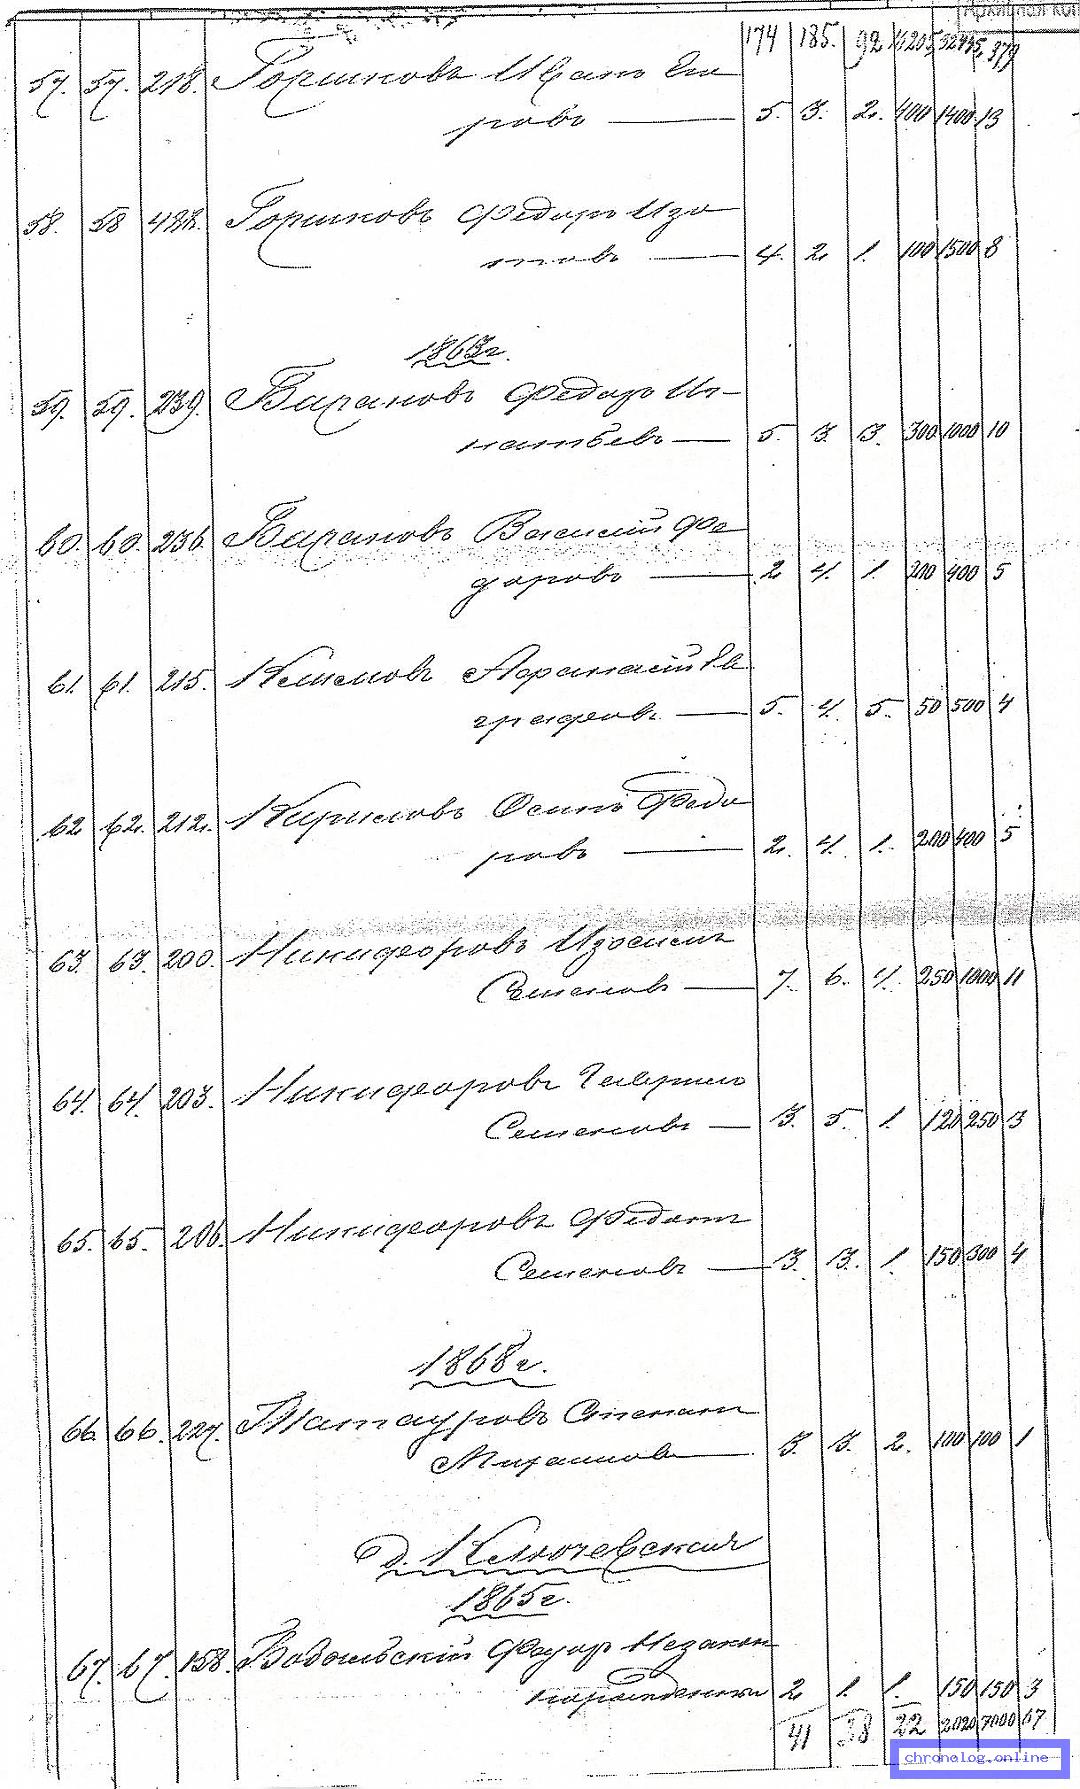 Архивная коп
174 185. 92 16205, 32445, 379
57. 57. 218. Горшковъ Иванъ Его
ровъ — 5. 3. 2. 400 1400 13
58. 58 Горшковъ Федоръ Изо
товъ — 4. 2. 1. 100 1500 8
1863г.
59. 59. 239. Барановъ Федоръ Иг-
натьевъ — 5. 3. 3. 300 1000 10
60. 60. 236. Барановъ Василій Фе
доровъ — 2 4. 1. 200 400 5
61. 61. 215. Афанасій Ев
графовъ. — 5. 4. 5. 50 500 4
62 62. 212. Кириловъ Осипъ Федо
ровъ — 2. 4. 1. 200 400 5
63. 63. 200. Никифоровъ Изосимъ
Семеновъ — 7. 6. 4. 250 1000 11
64. 64. 203. Никифоровъ Гаврило
Семеновъ — 3. 5. 1. 120 250 3
65. 65. 206. Никифоровъ Федотъ
Семеновъ — 3. 3. 1. 150 300 4
1868г.
66. 66. 227. Татауровъ Степанъ
— 3. 3. 2. 100 100 1
д. Ключевская
1865г.
67. 67. 158. Федоръ Незакон
норожденный 2 1. 1. 150 150 3
41 38 22 2020 7000 67
chronolog.online